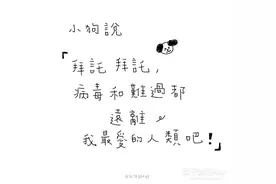 小狗說
「拜託 拜託，
病毒和難過都
遠離
我最愛的人類吧！」